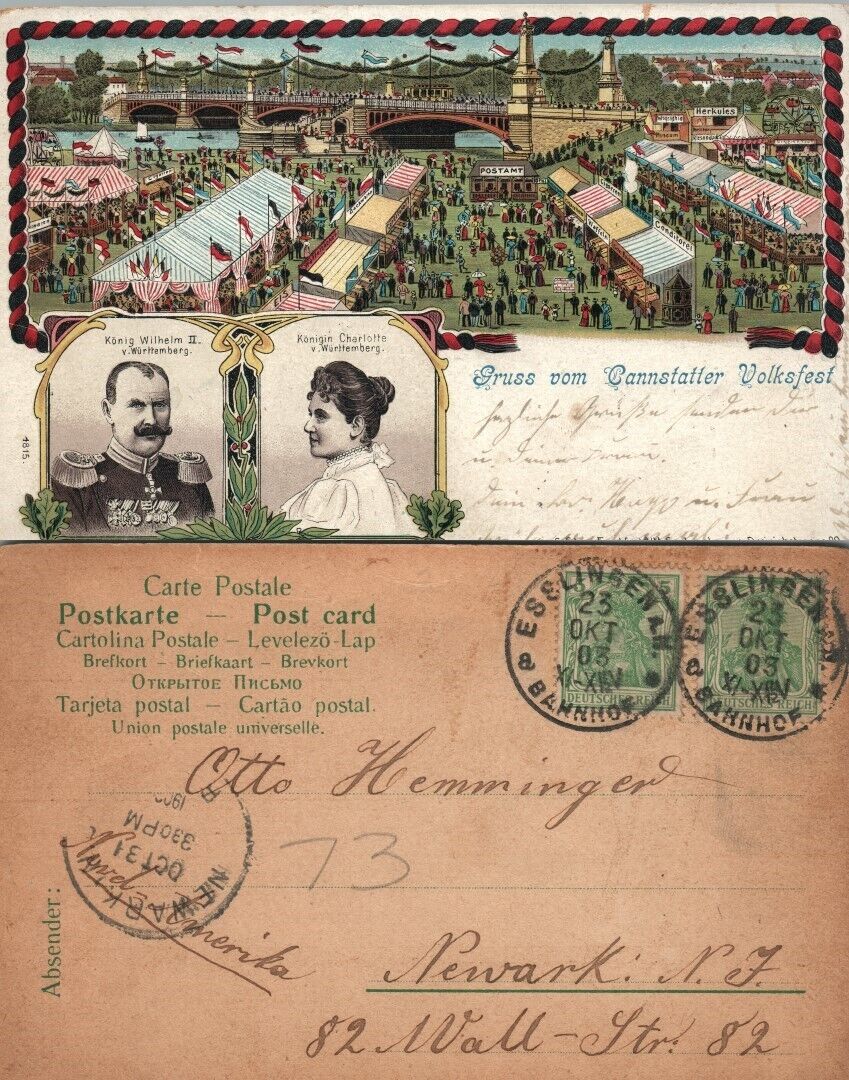 Herkules
POSTAMT
Conditorei
König Wilhelm II.
v. Württemberg.
Königin Charlotte
v. Württemberg.
Gruss vom Cannstatter Volksfest
herzliche Grüße sendet Dir
u. Deiner Frau.
Dein u. Frau
4815.
Carte Postale
Postkarte — Post card
Cartolina Postale – Levelező-Lap
Brefkort – Briefkaart – Brevkort
Открытое Письмо
Tarjeta postal – Cartão postal.
Union postale universelle.
ESSLINGEN a.N.
23
OKT
03
XI-XIIV
a BAHNHOF
DEUTSCHES REICH
ESSLINGEN a.N.
23
OKT
03
XI-XIIV
a BAHNHOF
DEUTSCHES REICH
Otto Hemminger
73
NEWARK
OCT 31
330 PM
190
Nord Amerika
Absender:
Newark: N. J.
82 Wall-Str: 82